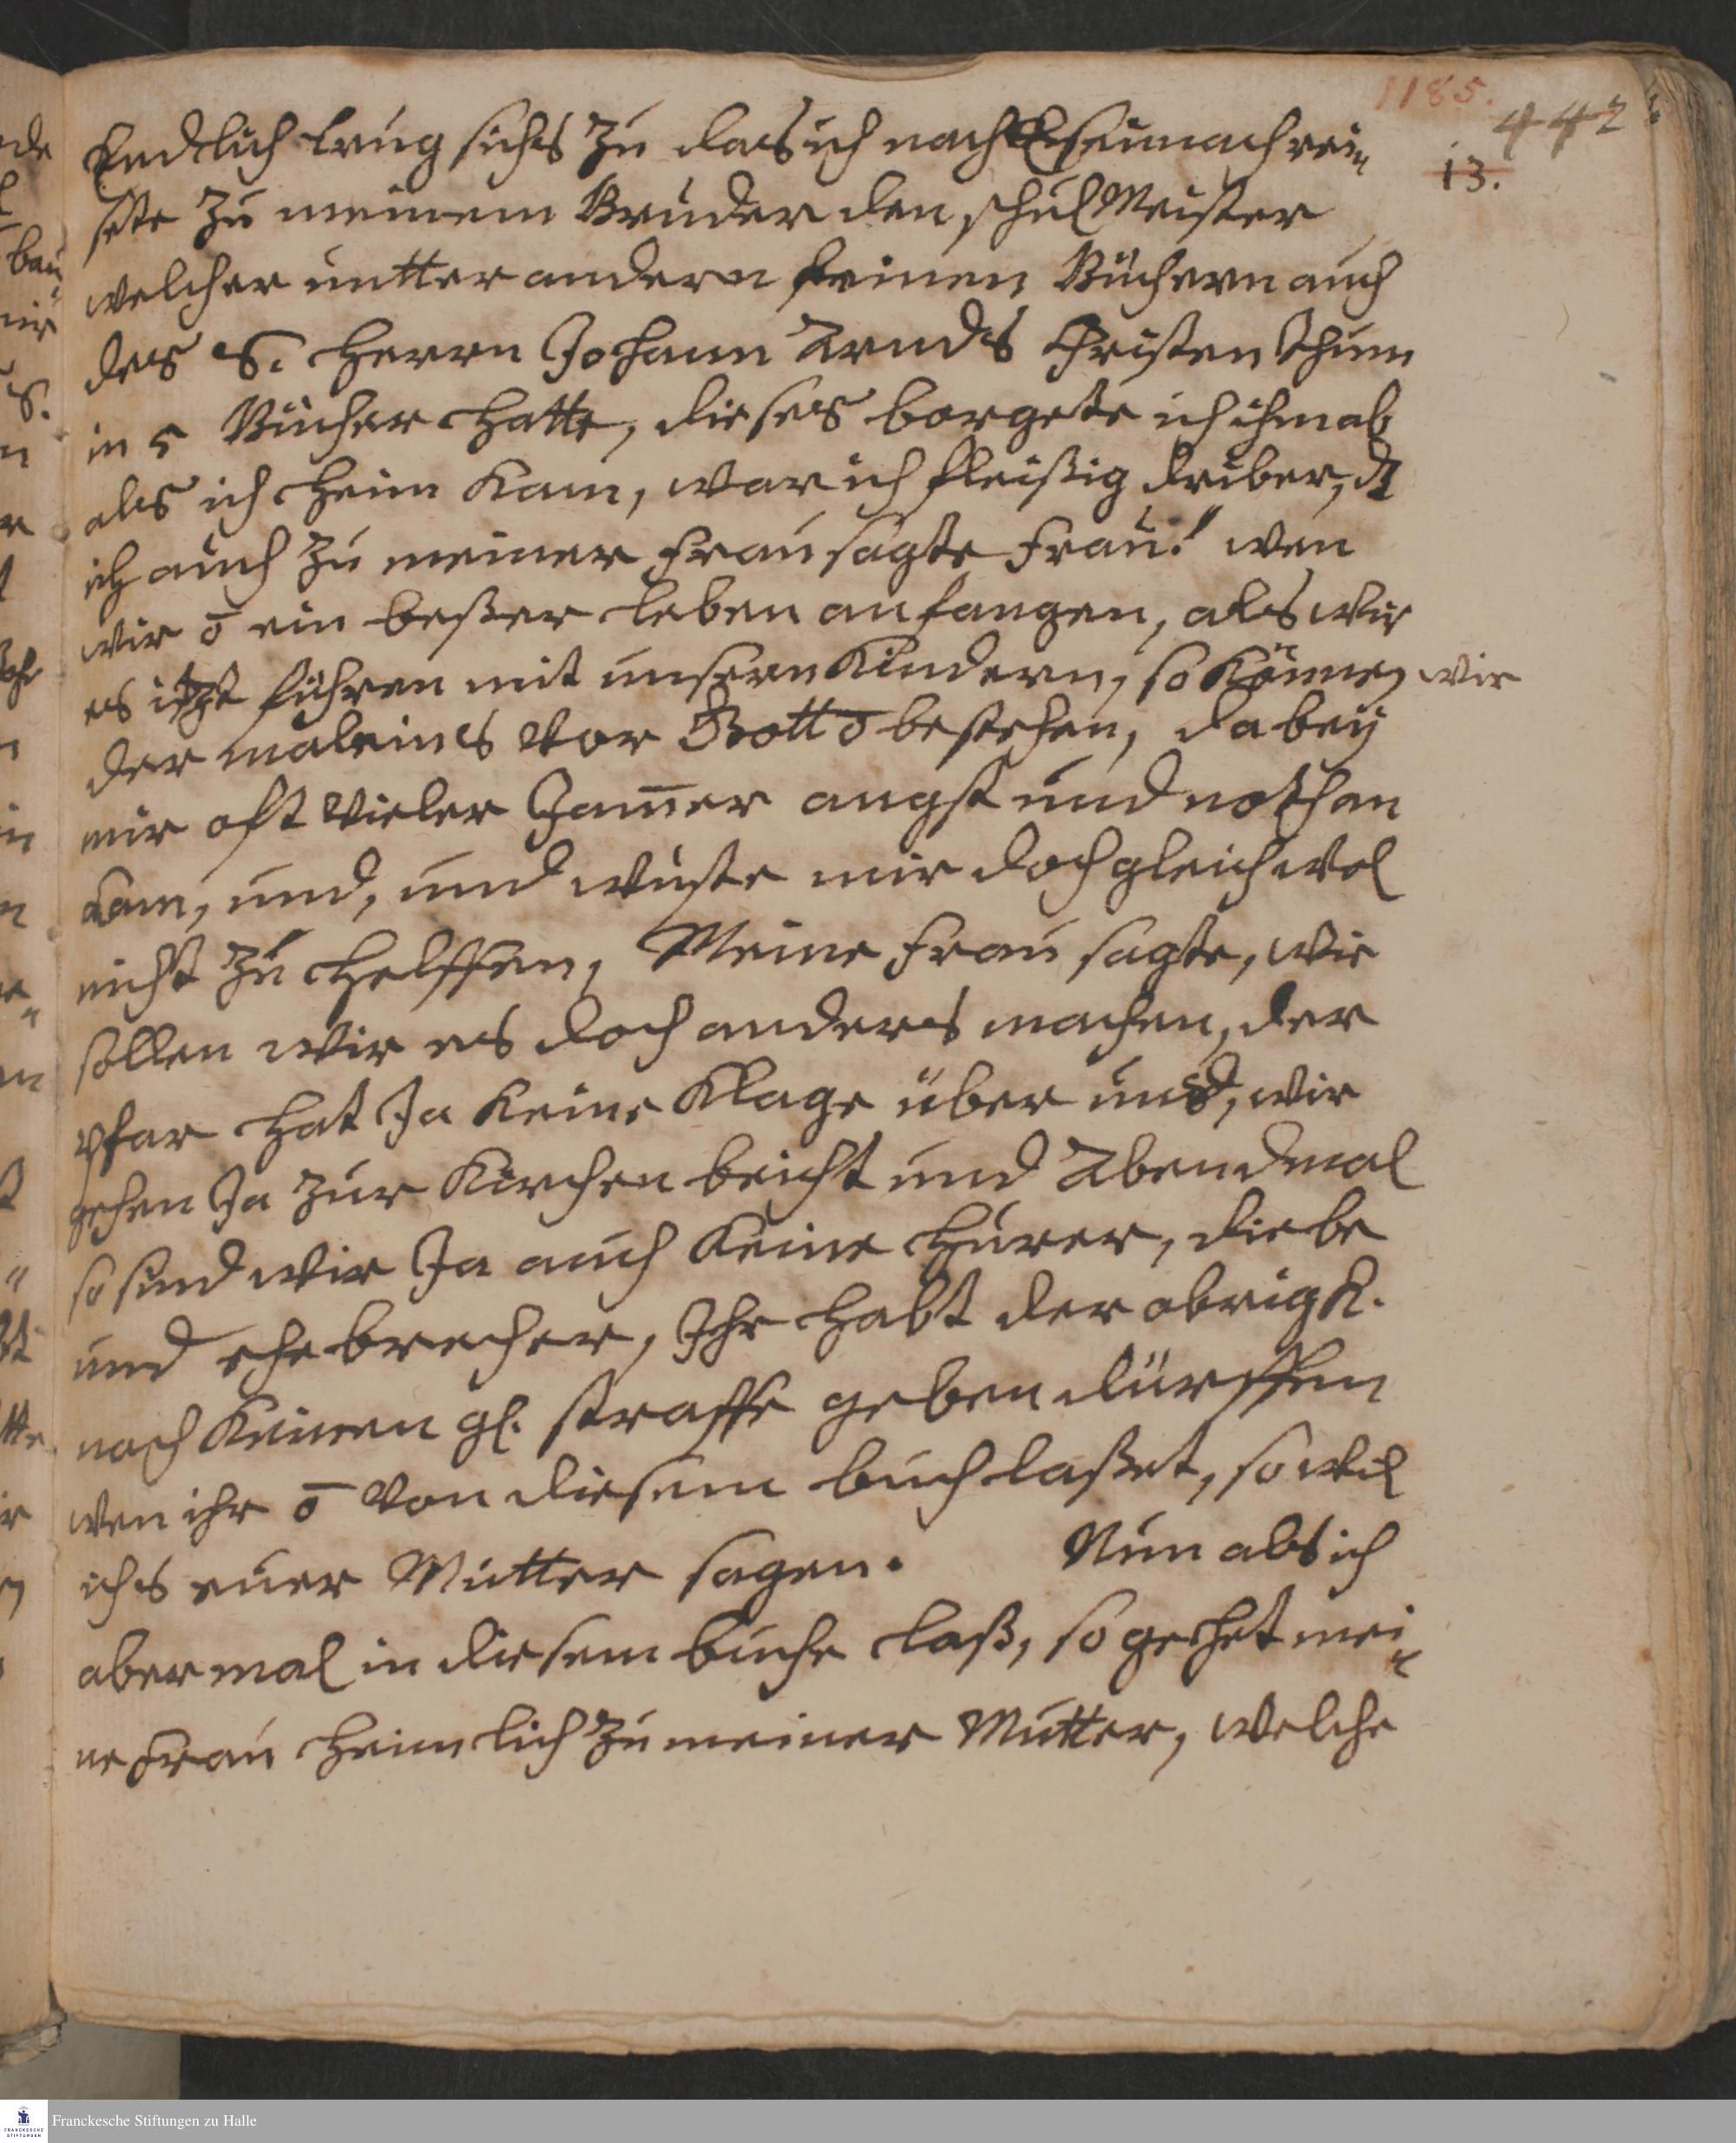 1185.
442
13.
Endtlich trug sichs zu das ich nach Eisennach rei¬
sete zu meinem Bruder den schul Meister
welcher untter andern seinen Büchern auch
des S. Herrn Johann Arnds Christenthum
in 5 Bücher hatte, dieses borgete ich ihm ab
als ich heim kam, war ich fleißig drüber, dz
ich auch zu meiner Frau sagte Frau! wen
wir ō ein beßer leben anfangen, als wir
es itzt führen mit unsern Kindern, so können wir
der maleins vor Gott ō bestehen, dabey
mir oft vieler Jam̄er angst und noth an
kam, und, und wuste mir doch gleich wol
nicht zu helffen, Meine Frau sagte, wie
sollen wir es doch anders machen, der
pfar hat Ja keine Klage über uns, wir
gehen Ja zur Kirchen beicht und Abendmal
so sind wir Ja auch keine Hurer, diebe
und ehebrecher, Ihr habt der obrigk.
noch keinen gl. straffe geben dürffen
wen ihr ō von diesem buch laßet, so wil
ichs euer Mutter sagen. Nun als ich
abermal in diesem buche laß, so gehet mei¬
ne Frau heimlich zu meiner Mutter, welche
Franckesche Stiftungen zu Halle